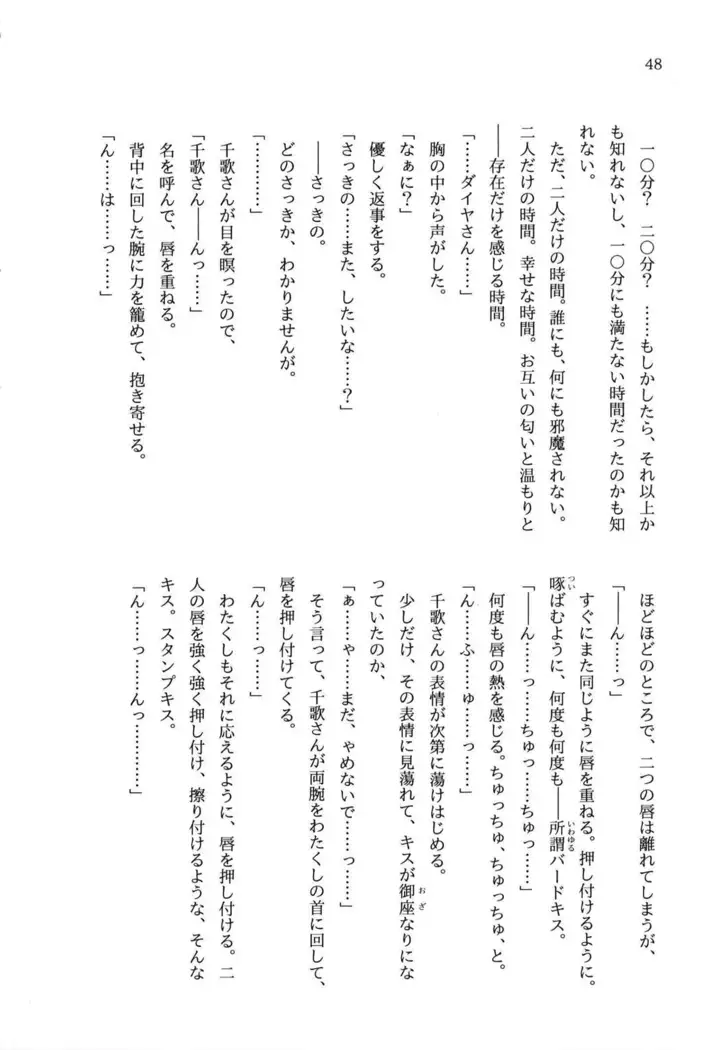 48
一〇分？　二〇分？　……もしかしたら、それ以上か
も知れないし、一〇分にも満たない時間だったのかも知
れない。
ただ、二人だけの時間。誰にも、何にも邪魔されない。
二人だけの時間。幸せな時間。お互いの匂いと温もりと
――存在だけを感じる時間。
「……ダイヤさん……」
胸の中から声がした。
「なぁに？」
優しく返事をする。
「さっきの……また、したいな……？」
――さっきの。
どのさっきか、わかりませんが。
「…………」
千歌さんが目を瞑ったので、
「千歌さん――んっ……」
名を呼んで、唇を重ねる。
背中に回した腕に力を籠めて、抱き寄せる。
「ん……は……っ……」
ほどほどのところで、二つの唇は離れてしまうが、
「――ん……っ」
すぐにまた同じように唇を重ねる。押し付けるように。
啄ばむように、何度も何度も――所謂バードキス。
「――ん……っ……ちゅっ……ちゅっ……」
何度も唇の熱を感じる。ちゅっちゅ、ちゅっちゅ、と。
「ん……ふ……ゅ……っ……」
千歌さんの表情が次第に蕩けはじめる。
少しだけ、その表情に見蕩れて、キスが御座なりにな
っていたのか、
「ぁ……ゃ……まだ、ゃめないで……っ……」
そう言って、千歌さんが両腕をわたくしの首に回して、
唇を押し付けてくる。
「ん……っ……」
わたくしもそれに応えるように、唇を押し付ける。二
人の唇を強く強く押し付け、擦り付けるような、そんな
キス。スタンプキス。
「ん……っ……んっ…………」